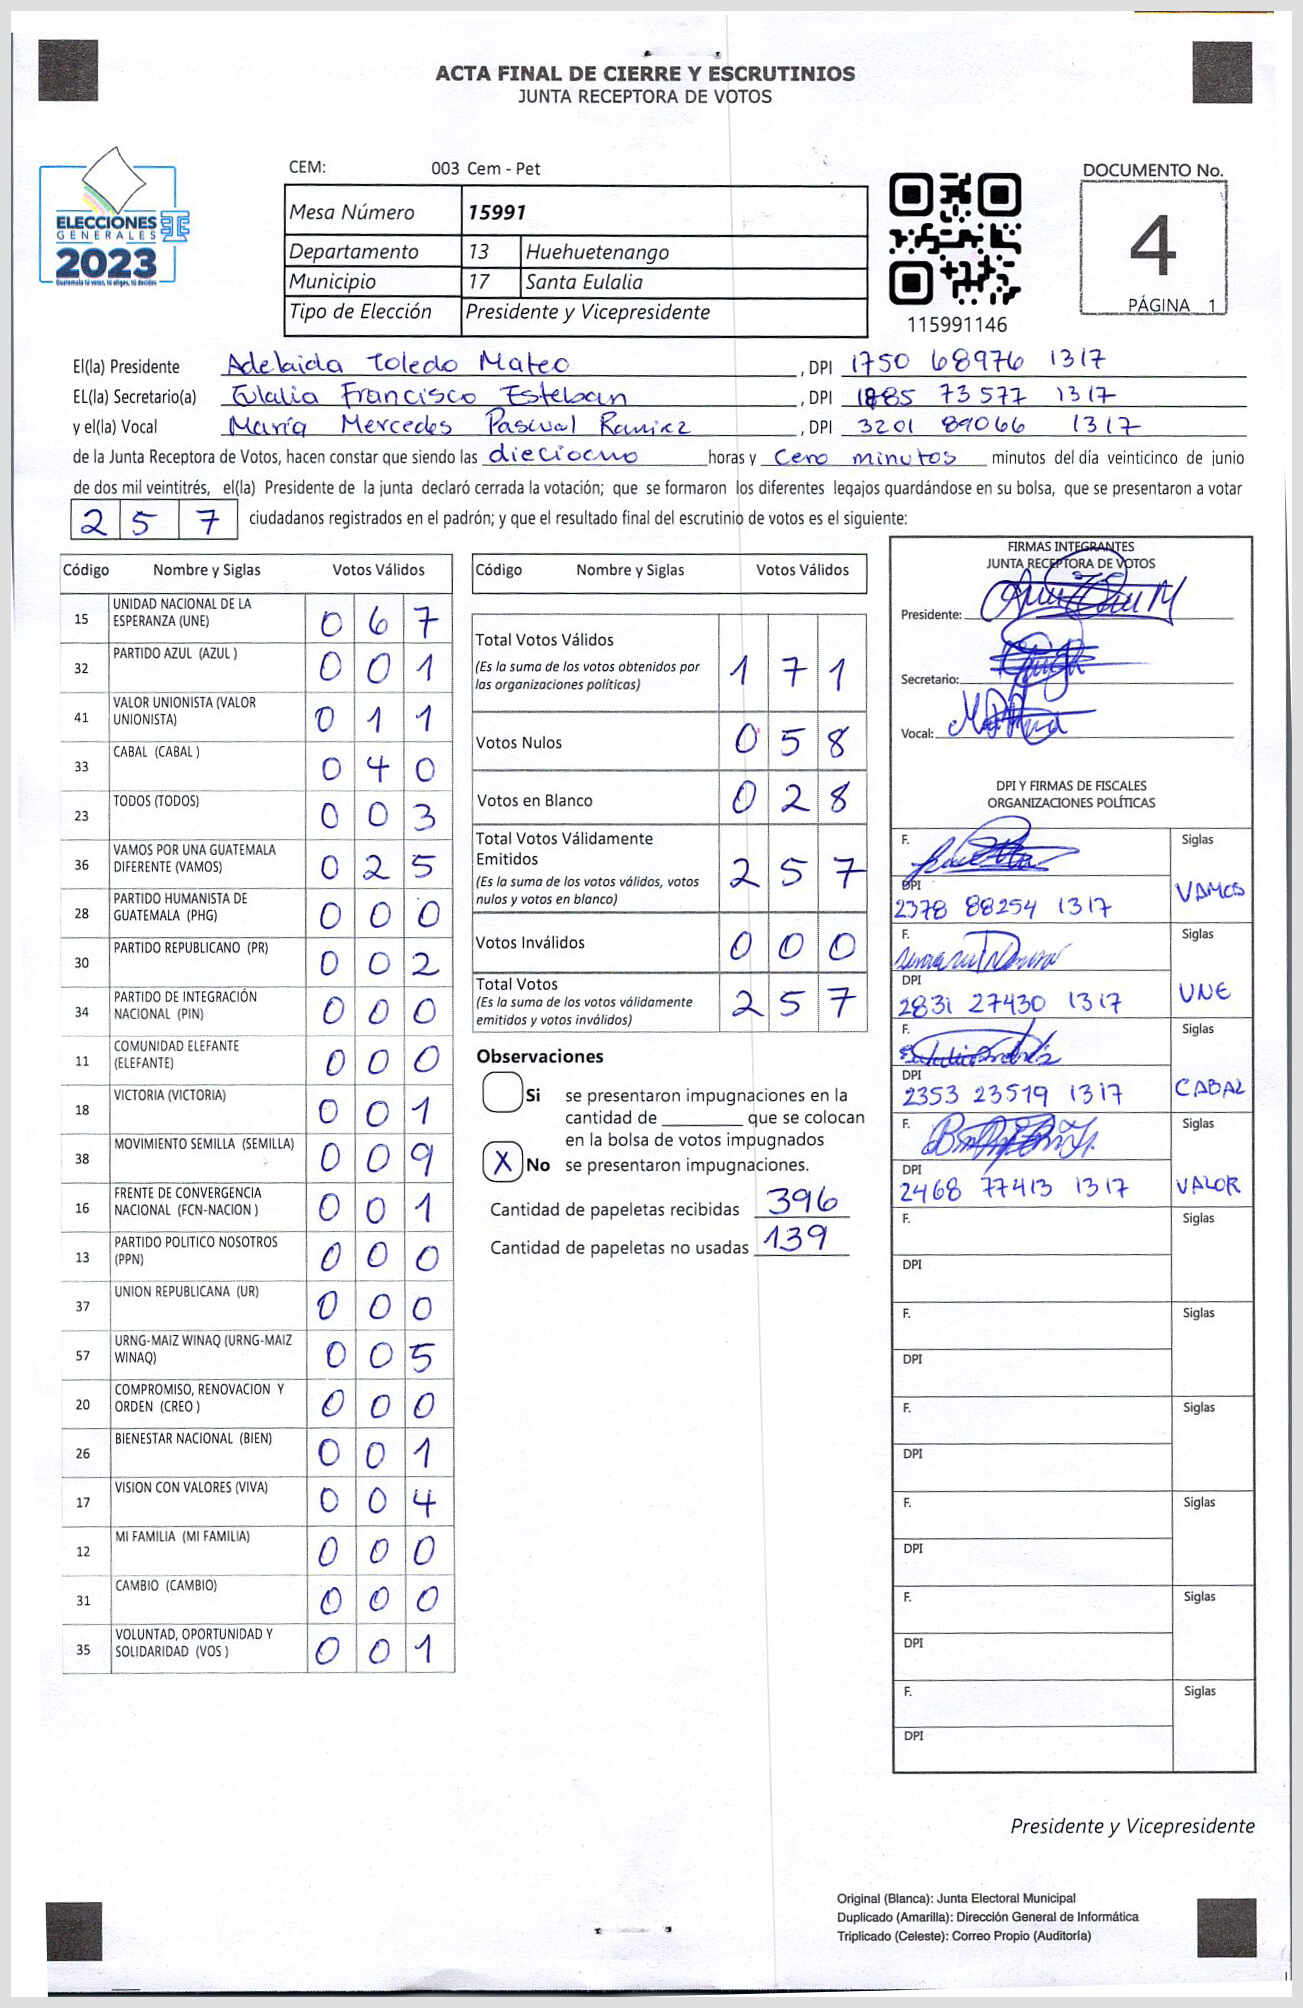 ACTA FINAL DE CIERRE Y ESCRUTINIOS
JUNTA RECEPTORA DE VOTOS
ELECCIONES
GENERALES
2023
Guatemala tú votas, tú eliges, tú decides
CEM: 003 Cem - Pet
Mesa Número 15991
Departamento 13 Huehuetenango
Municipio 17 Santa Eulalia
Tipo de Elección Presidente y Vicepresidente
115991146
DOCUMENTO No.
4
PÁGINA 1
El(la) Presidente Adelaida Toledo Mateo, DPI 1750 68976 1317
EL(la) Secretario(a) Eulalia Francisco Esteban, DPI 1885 73577 1317
y el(la) Vocal María Mercedes Pascual Ramirez, DPI 3201 89066 1317
de la Junta Receptora de Votos, hacen constar que siendo las dieciocho horas y cero minutos minutos del día veinticinco de junio
de dos mil veintitrés, el(la) Presidente de la junta declaró cerrada la votación; que se formaron los diferentes legajos guardándose en su bolsa, que se presentaron a votar
2 5 7 ciudadanos registrados en el padrón; y que el resultado final del escrutinio de votos es el siguiente:
Código Nombre y Siglas Votos Válidos
15 UNIDAD NACIONAL DE LA ESPERANZA (UNE) 0 6 7
32 PARTIDO AZUL (AZUL ) 0 0 1
41 VALOR UNIONISTA (VALOR UNIONISTA) 0 1 1
33 CABAL (CABAL ) 0 4 0
23 TODOS (TODOS) 0 0 3
36 VAMOS POR UNA GUATEMALA DIFERENTE (VAMOS) 0 2 5
28 PARTIDO HUMANISTA DE GUATEMALA (PHG) 0 0 0
30 PARTIDO REPUBLICANO (PR) 0 0 2
34 PARTIDO DE INTEGRACIÓN NACIONAL (PIN) 0 0 0
11 COMUNIDAD ELEFANTE (ELEFANTE) 0 0 0
18 VICTORIA (VICTORIA) 0 0 1
38 MOVIMIENTO SEMILLA (SEMILLA) 0 0 9
16 FRENTE DE CONVERGENCIA NACIONAL (FCN-NACION ) 0 0 1
13 PARTIDO POLITICO NOSOTROS (PPN) 0 0 0
37 UNION REPUBLICANA (UR) 0 0 0
57 URNG-MAIZ WINAQ (URNG-MAIZ WINAQ) 0 0 5
20 COMPROMISO, RENOVACION Y ORDEN (CREO ) 0 0 0
26 BIENESTAR NACIONAL (BIEN) 0 0 1
17 VISION CON VALORES (VIVA) 0 0 4
12 MI FAMILIA (MI FAMILIA) 0 0 0
31 CAMBIO (CAMBIO) 0 0 0
35 VOLUNTAD, OPORTUNIDAD Y SOLIDARIDAD (VOS ) 0 0 1
Código Nombre y Siglas Votos Válidos
Total Votos Válidos
(Es la suma de los votos obtenidos por
las organizaciones políticas) 1 7 1
Votos Nulos 0 5 8
Votos en Blanco 0 2 8
Total Votos Válidamente
Emitidos
(Es la suma de los votos válidos, votos
nulos y votos en blanco) 2 5 7
Votos Inválidos 0 0 0
Total Votos
(Es la suma de los votos válidamente
emitidos y votos inválidos) 2 5 7
Observaciones
Si se presentaron impugnaciones en la
cantidad de ________ que se colocan
en la bolsa de votos impugnados
X No se presentaron impugnaciones.
Cantidad de papeletas recibidas 396
Cantidad de papeletas no usadas 139
FIRMAS INTEGRANTES
JUNTA RECEPTORA DE VOTOS
Presidente:
Secretario:
Vocal:
DPI Y FIRMAS DE FISCALES
ORGANIZACIONES POLÍTICAS
F. Siglas
DPI VAMOS
2378 88254 1317
F. Siglas
DPI UNE
2831 27430 1317
F. Siglas
DPI CABAL
2353 23519 1317
F. Siglas
DPI VALOR
2468 77413 1317
F. Siglas
DPI
F. Siglas
DPI
F. Siglas
DPI
F. Siglas
DPI
F. Siglas
DPI
F. Siglas
DPI
Presidente y Vicepresidente
Original (Blanca): Junta Electoral Municipal
Duplicado (Amarilla): Dirección General de Informática
Triplicado (Celeste): Correo Propio (Auditoría)